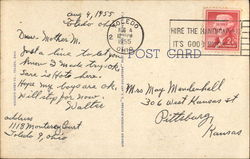 Aug 4, 1955
Toledo Ohio
Dear Mother M.
Just a line to let you
know I made trip ok.
Sare is Hot here.
Hope my boys are ok.
Will stop for now.
Walter
address
1118 Monterey Court
Toledo 9, Ohio
TOLEDO
AUG 4
1955
OHIO
HIRE THE HANDICAPPED
IT'S GOOD BUSINESS
POST CARD
Mrs May Mendenhall
306 West Kansas St
Pittsburg
Kansas